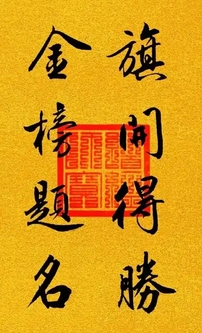 旗開得勝
金榜題名